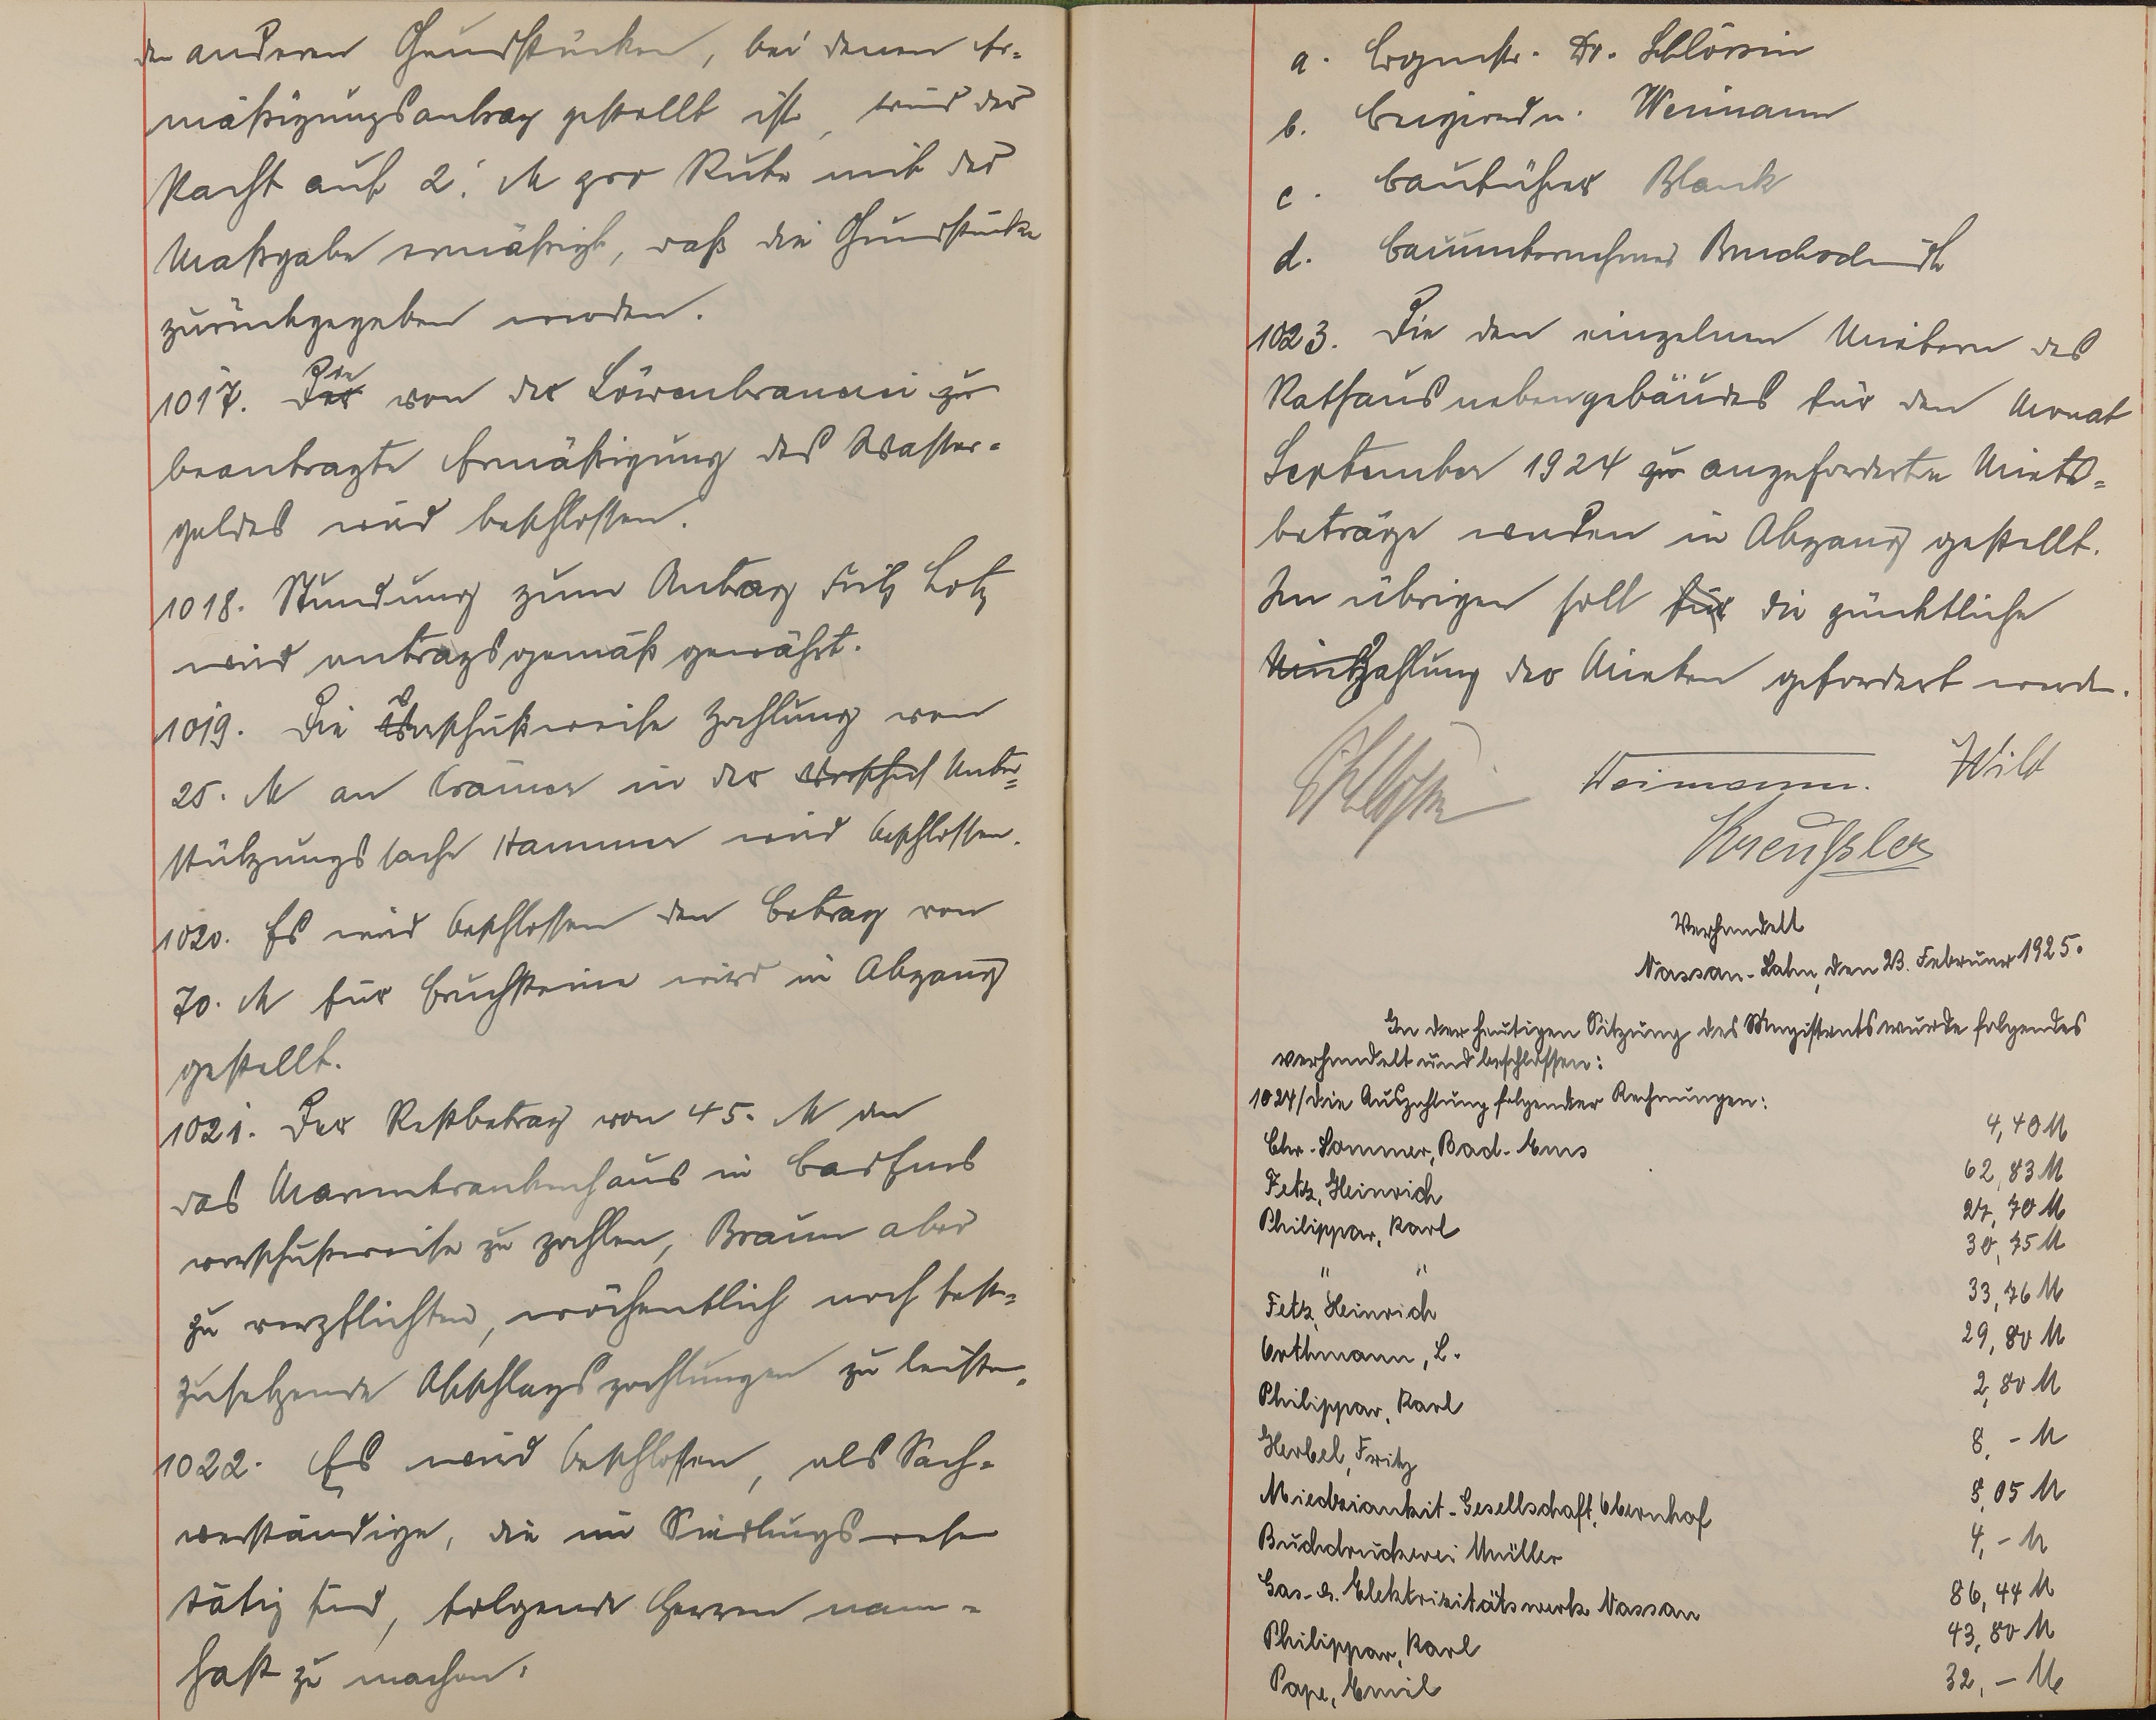 den anderen Grundstücken, bei denen Er-
mäßigungsantrag gestellt ist, wird der
Pacht auf 2. M pro Rute mit der
Maßgabe ermäßigt, daß die Grundstücke
zurückgegeben werden.
1017. Die von der Löwenbrauerei zu
beantragte Ermäßigung des Wasser-
geldes wird beschlossen.
1018. Stundung zum Antrag Fritz Lotz
wird antragsgemäß gewährt.
1019. Die vorschußweise Zahlung von
25. M an Cramer in der Unter-
stützungssache Hammer wird beschlossen.
1020. Es wird beschlossen den Betrag von
70. M für Bruchsteine wird in Abgang
gestellt.
1021. Der Restbetrag von 45. M an
das Marienkrankenhaus in Bad Ems
vorschußweise zu zahlen, Braun aber
zu verpflichten, wöchentlich noch fest-
zusetzende Abschlagszahlungen zu leisten.
1022. Es wird beschlossen, als Sach-
verständige, die im Siedlungswesen
tätig sind, folgende Herren nam-
haft zu machen:
a. Bürgmstr. Dr. Schlössin
b. Beigeordn. Weimann
c. Bauführer Blank
d. Bauunternehmer
1023. Die den einzelnen Mietern des
Rathausnebengebäudes für den Monat
September 1924 angeforderten Miets-
beträge werden in Abgang gestellt.
Im übrigen soll die pünktliche
Zahlung der Mieten gefordert werden.
Weimann. Wild
Kreußler
Verhandelt
Nassau-Lahn, den 23. Februar 1925.
In der heutigen Sitzung des Magistrats wurde folgendes
verhandelt und beschlossen:
1024/ Die Auszahlung folgender Rechnungen:
Chr. Sommer, Bad-Ems 4,40 M
Fetz, Heinrich 62,83 M
Philippar, Karl 27,70 M
" " 30,75 M
Fetz, Heinrich 33,76 M
Orthmann, L. 29,80 M
Philippar, Karl 2,80 M
Herbel, Fritz 8,- M
Miedziankit-Gesellschaft, Obernhof 8,05 M
Buchdruckerei Müller 4,- M
Gas- u. Elektrizitätswerk Nassau 86,44 M
Philippar, Karl 43,80 M
Pape, Emil 32,- M